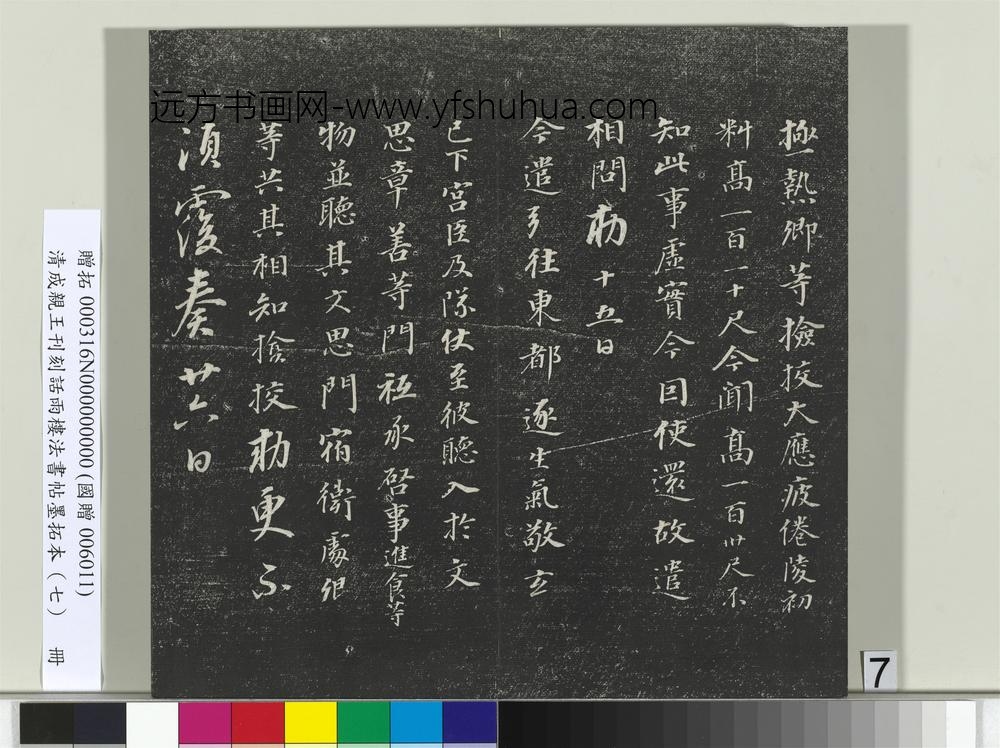 極熱卿等檢校大應疲倦陵初
料高一百一十尺今聞高一百卅尺不
知此事虛實今因使還故遣
相問勅 十五日
今遣弓往東都逐生氣敬玄
已下宮臣及隊仗至彼聽入於文
思章善等門祗承啓事進食等
物並聽其文思門宿衛處仰
等共其相知捨挍勅更不
須覆奏 廿六日
远方书画网-www.yfshuhua.com
贈拓 000316N000000000 (國贈 006011)
清成親王刊刻話雨樓法書帖墨拓本(七) 冊
7